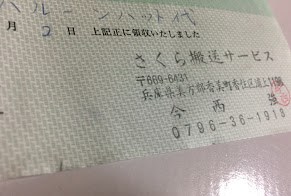 バルーンハット代
月 2 日 上記正に領収いたしました
さくら搬送サービス
〒669-6431
兵庫県美方郡香美町香住区道上
今西 強
0796-36-1918